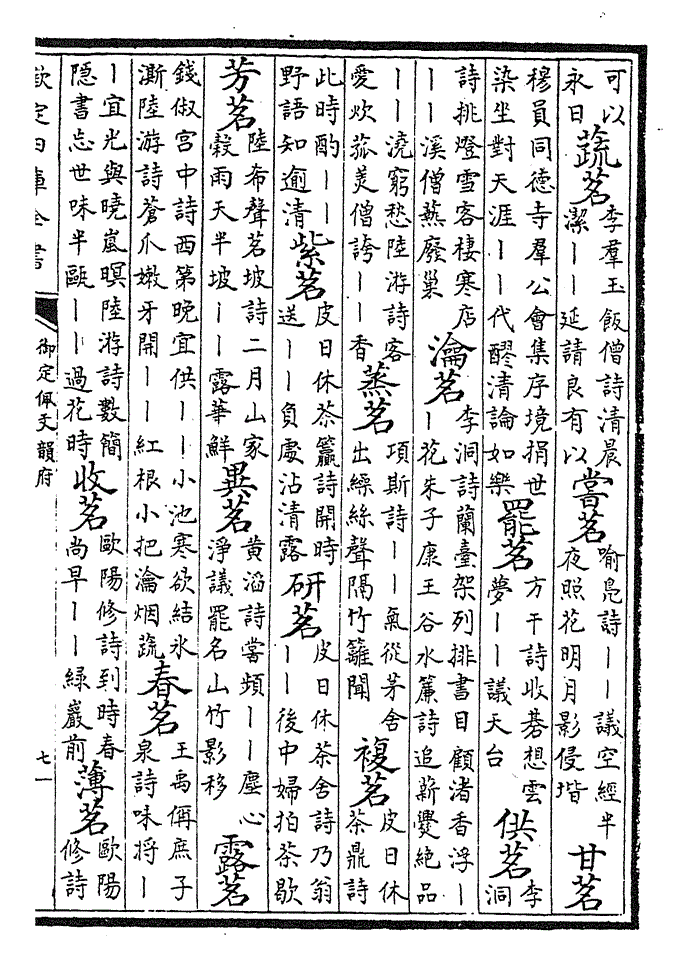 可以永日蔬茗李羣玉飯僧詩清晨潔——延請良有以嘗茗喻鳧詩——議空經半夜照花明月影侵堦甘茗
穆員同德寺羣公會集序境捐世染坐對天涯——代醪清論如樂罷茗方干詩收碁想雲夢——議天台供茗李洞
詩挑燈雪客棲寒店——溪僧爇廢巢瀹茗李洞詩蘭臺架列排書目顧渚香浮——花朱子康王谷水簾詩追薪爨絶品
——澆窮愁陸游詩客愛炊菰美僧誇——香蒸茗項斯詩——氣從茅舍出繰絲聲隔竹籬聞複茗皮日休茶鼎詩
此時酌——野語知逾清紫茗皮日休茶籯詩開時送——負處沾清露研茗皮日休茶舍詩乃翁——後中婦拍茶歇
芳茗陸希聲茗坡詩二月山家穀雨天半坡——露華鮮異茗黃滔詩嘗頻——塵心淨議罷名山竹影移露茗
錢俶宮中詩西第晚宜供——小池寒欲結氷澌陸游詩蒼爪嫩牙開——紅根小把瀹烟蔬春茗王禹偁庶子泉詩味捋—
—宜光與曉嵐暝陸游詩數簡隱書忘世味半甌——過花時收茗歐陽修詩到時春尚早——綠巖前薄茗歐陽修詩
欽定四庫全書
御定佩文韻府
七一